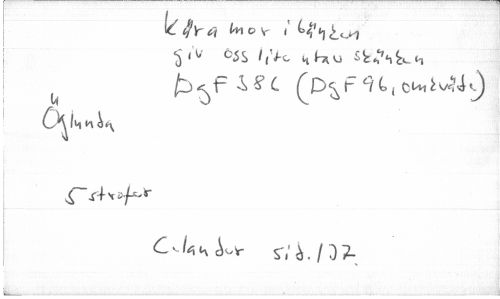 Kära mor i bänken
giv oss lite utav skänken
DgF 386 (DgF 96, omkväde)
Öglunda
5 strofer
Celander sid. 137.